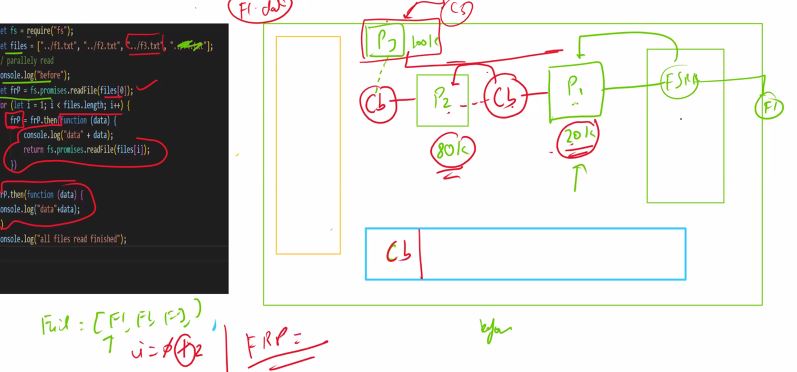 et fs = require("fs")
et files = ["../f1.txt", "../f2.txt", "../f3.txt", "
/ parallely read
onsole.log("before");
et frP = fs.promises.readFile(files[0]);
or (let i = 1; i < files.length; i++) {
frP = frP.then(function (data) {
console.log("data" + data);
return fs.promises.readFile(files[i]);
})
rP.then(function (data) {
onsole.log("data"+data);
)
onsole.log("all files read finished");
F1-data
CS
P3
100k
Cb
P2
Cb
P1
FSRA
F1
80k
20k
Cb
FRP =